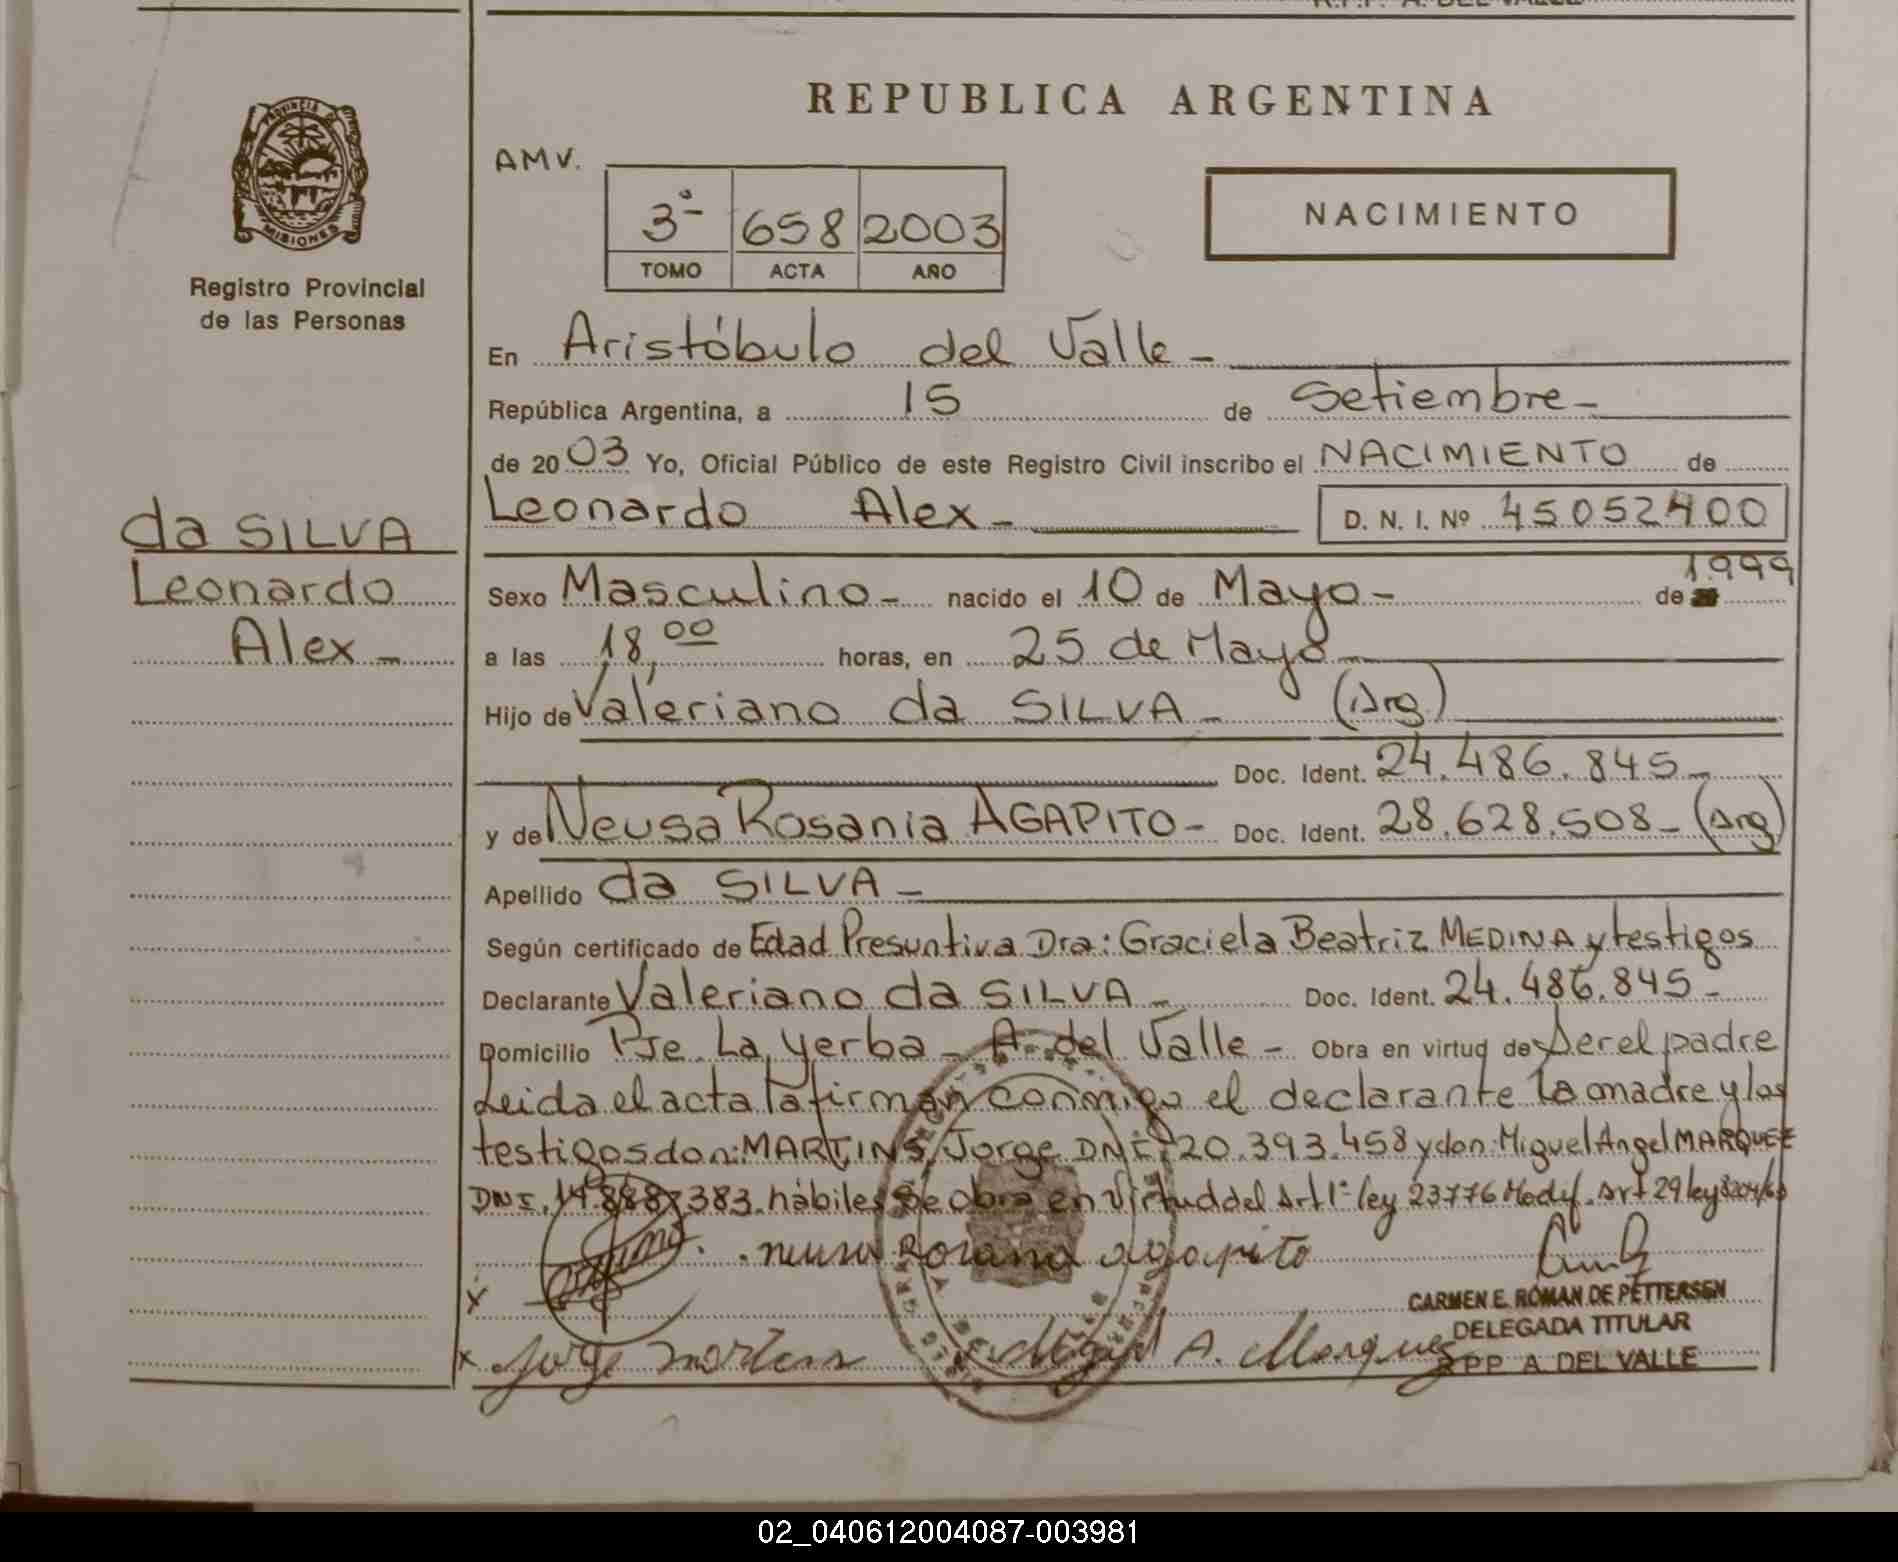 REPUBLICA ARGENTINA
PROVINCIA DE
MISIONES
Registro Provincial
de las Personas
AMV.
3ª 658 2003
TOMO ACTA AÑO
NACIMIENTO
En Aristóbulo del Valle -
República Argentina, a 15 de Setiembre -
de 2003 Yo, Oficial Público de este Registro Civil inscribo el NACIMIENTO de
Leonardo Alex - D. N. I. Nº 45052400
da SILVA
Leonardo
Alex -
Sexo Masculino - nacido el 10 de Mayo - de 1.999
a las 18,00 horas, en 25 de Mayo -
Hijo de Valeriano da SILVA - (Arg)
Doc. Ident. 24.486.845 -
y de Neusa Rosania AGAPITO - Doc. Ident. 28.628.508 - (Arg)
Apellido da SILVA -
Según certificado de Edad Presuntiva Dra: Graciela Beatriz MEDINA y testigos
Declarante Valeriano da SILVA - Doc. Ident. 24.486.845 -
Domicilio Pje. La Yerba - A. del Valle - Obra en virtud de Ser el padre
Leida el acta la firman conmigo el declarante la madre y los
testigos don: MARTINS, Jorge DNI. 20.393.458 y don: Miguel Angel MARQUEZ
DNI. 14.888.383. hábiles Se obra en virtud del Art 1º ley 23776 Modif. Art 29 ley 8204/63
neusa Rosania agapito
x
CARMEN E. ROMAN DE PETTERSEN
DELEGADA TITULAR
R.P.P. A. DEL VALLE
x Jorge Martins Miguel A. Marquez
02_040612004087-003981